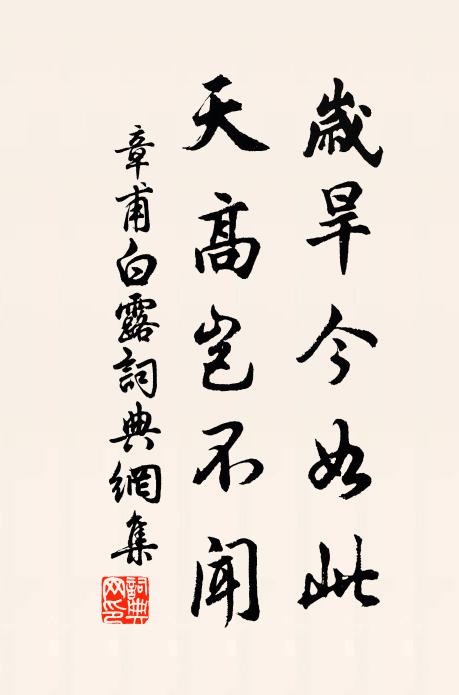 歲旱今如此
天高豈不聞
章甫白露詞典網集
詞典网印